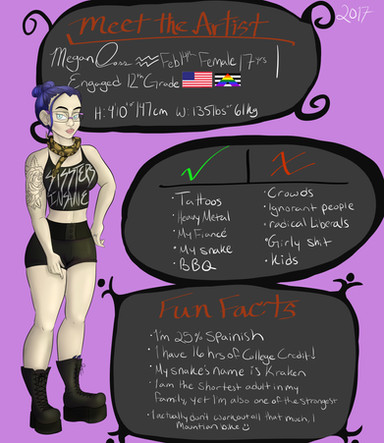 2017
Meet the Artist
Megan Feb 14th Female 17 yrs
Engaged 12th Grade
H: 4'10" or 147cm W: 135lbs or 61kg
SISSTERS
INSANE
· Tattoos
· Heavy Metal
· My Fiancé
· My snake
· BBQ
· Crowds
· Ignorant people
· radical Liberals
· Girly shit
· Kids
Fun Facts
· I'm 25% Spainish
· I have 16 hrs of College Credit!
· My snake's name is Kraken
· I am the shortest adult in my
family, yet I'm also one of the strongest
· I actually don't workout all that much, I
Mountian bike